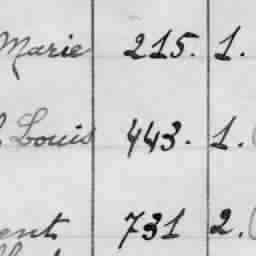 Marie 215. 1.
Louis 443. 1.
ent 731 2.